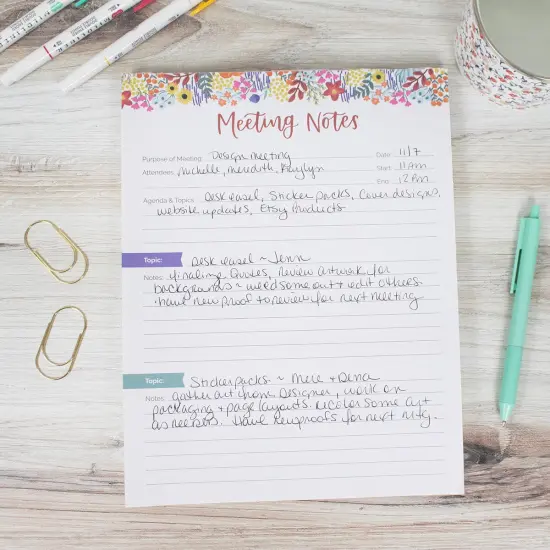 Meeting Notes
Purpose of Meeting: Design meeting
Date: 11/7
Attendees: Michelle, Meredith, Kaylyn
Start: 11 Am
End: 12 Pm
Agenda & Topics: Desk easel, Sticker packs, Cover designs,
website updates, Etsy Products
Topic: Desk easel ~ Jenn
Notes: Finalize Quotes, review artwork for
backgrounds ~ weed some out + edit others.
Have new proof to review for next meeting
Topic: Sticker packs ~ Mere + Dena
Notes: gather art from Designer, work on
packaging + page layouts. Recolor some art
as needed. Have new proofs for next mtg.